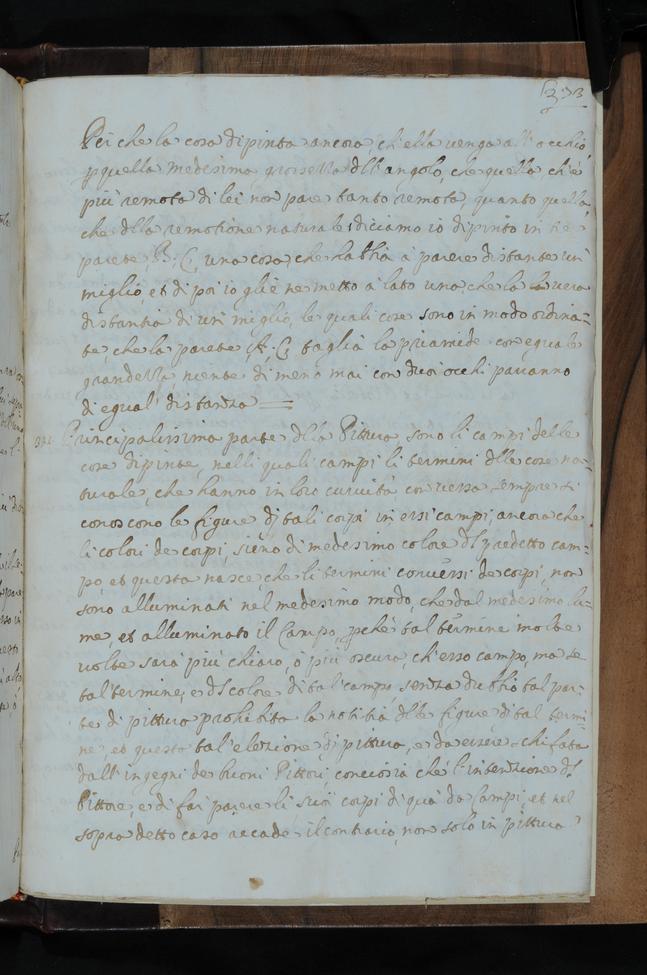 Perche la cosa dipinta ancora, ch'ella venga all'occhio
p quella medesima grossezza dll'angolo, che quella, ch'è
più remota di lei non pare tanto remota, quanto quella,
che dlla remotione naturale; diciamo io dipinto in
parete, B. C, una cosa, che habbia à parere distante un
miglio, et di poi io gliè ne metto à lato una che la vera
distantia di un' miglio, le quali cose sono in modo ordina-
te, che la parete A. C, taglia la piramide con eguale
grandezza, niente di meno mai con duoi occhi paranno
di egual' distanza =
Principalissima parte dlla Pittura, sono li campi delle
cose dipinte, nelli quali campi li termini dlle cose na-
turale, che hanno in loro curvità conversa sempre si
conoscono le figure dj tali corpi in essi campi, ancora che
li colori de corpi, sieno di medesimo colore dl predetto cam-
po, et questo nasce, che li termini conversi de corpi, non
sono alluminati nel medesimo modo, che dal medesimo lu-
me, et alluminato il Campo, pchè tal termine molte
volte sarà più chiaro, ò più oscuro, ch'esso campo, ma se
tal termine, e dl colore di tal' campo senza dubbio tal par-
te di pittura prohibita la notitia dlle figure di tal termi-
ne, et questa tal' elezione dj pittura, e da essere schifata
dall'ingegni de buoni Pittori, conciosia che l'intenzione dl
Pittore, e di far parere li suoi corpi di quà da Campi, et nel
sopra detto caso accade il contrario, non solo in pittura